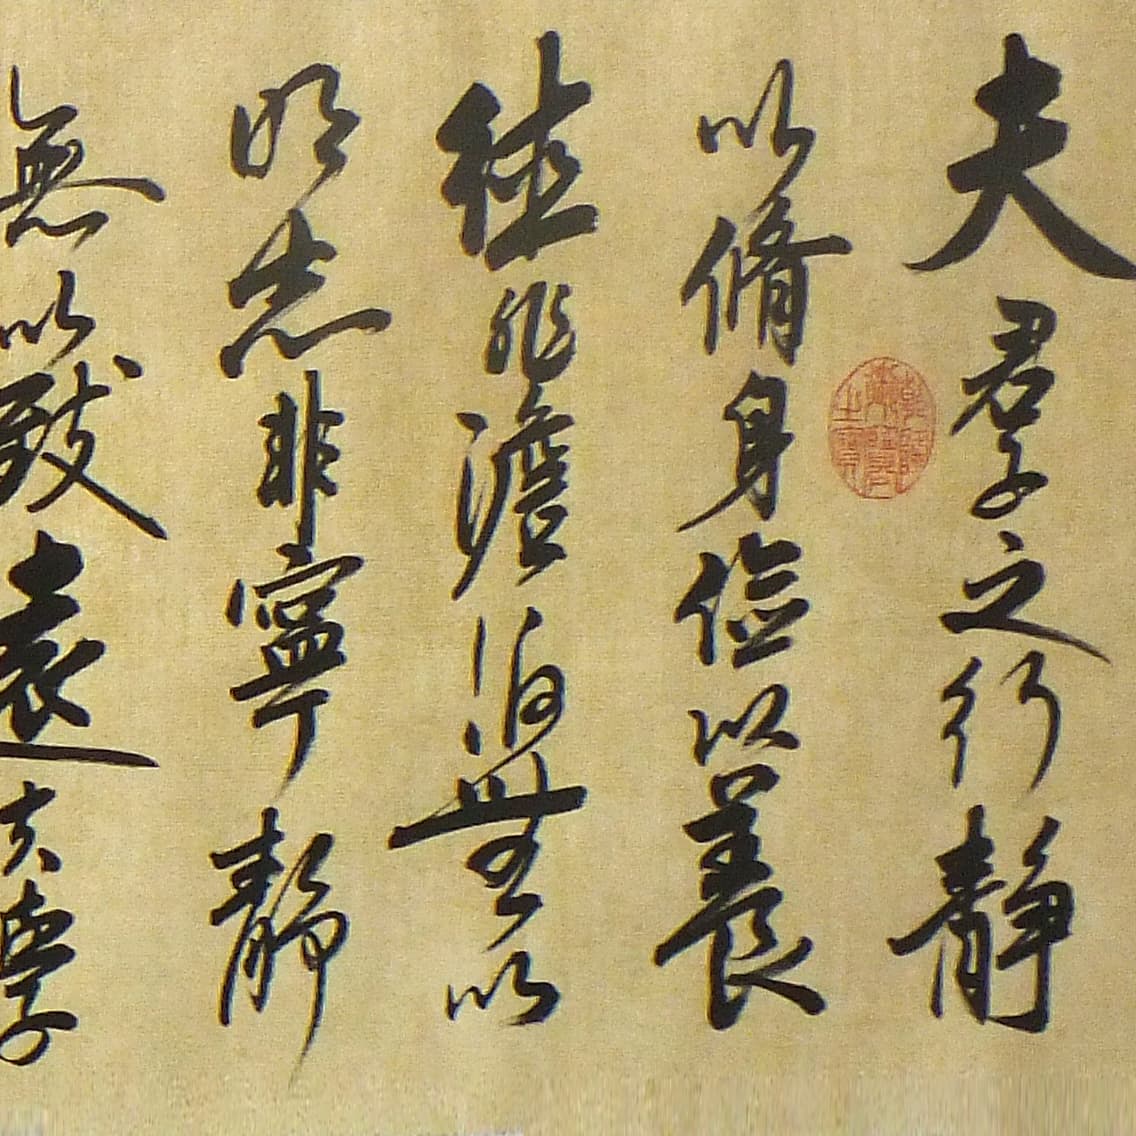 夫君子之行靜
以脩身儉以養
德非澹泊無以
明志非寧靜
無以致遠夫學